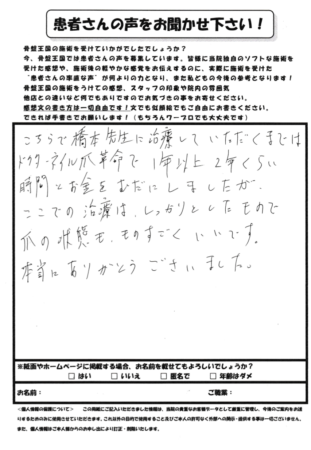 患者さんの声をお聞かせ下さい！
骨盤王国の施術を受けていかがでしたでしょうか？
今、骨盤王国では患者さんの声を募集しています。皆様に当院独自のソフトな施術を
受けた感想や、施術後の軽やかな感覚をお伝えするのに、実際に施術を受けた
"患者さんの率直な声"が何よりの力となり、また私どもの今後の参考となります！
骨盤王国の施術をうけての感想、スタッフの印象や院内の雰囲気
他店との違いなど何でもありですのでお気づきの事をお寄せください。
感想文の書き方は一切自由です！文でも似顔絵でもご自由にお書きください。
できれば手書きでお願いします！（もちろんワープロでも大丈夫です）
こちらで橋本先生に治療していただくまでは
ドクターネイル爪革命で1年以上2年くらい
時間とお金をむだにしましたが、
ここでの治療は、しっかりとしたもので
爪の状態も、ものすごくいいです。
本当にありがとうございました。
※紙面やホームページに掲載する場合、お名前を載せてもよろしいでしょうか？
□ はい □ いいえ □ 匿名で □ 年齢はダメ
お名前： ご職業：